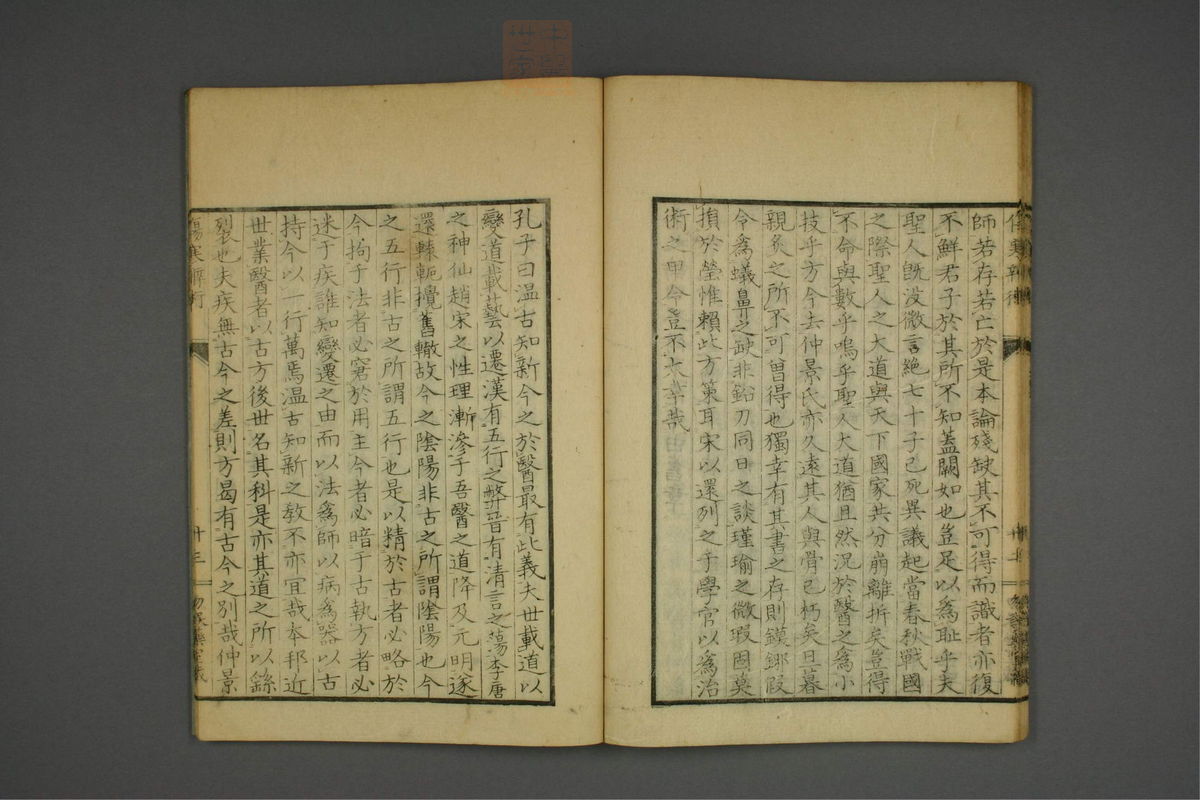 師若存若亡於是本論殘缺其不可得而識者亦復
不鮮君子於其所不知蓋闕如也豈足以為耻乎夫
聖人旣没微言絶七十子已死異議起當春秋戰國
之際聖人之大道與天下國家共分崩離折矣豈得
不命與數乎嗚乎聖人大道猶且然況於醫之為小
技乎方今去仲景氏亦久遠其人與骨已朽矣旦暮
親炙之所不可曾得也獨幸有其書之存則鏌鎁假
令為蟻鼻之缺非鉛刀同日之談瑾瑜之微瑕固莫
損於瑩惟賴此方策耳宋以還列之于學官以為治
術之甲令豈不大幸哉
孔子曰温古知新今之於醫最有此義夫世載道以
變道載藝以遷漢有五行之弊晉有清言之蕩李唐
之神仙趙宋之性理漸滲于吾醫之道降及元明遂
還轅軛攪舊轍故今之陰陽非古之所謂陰陽也今
之五行非古之所謂五行也是以精於古者必略於
今拘于法者必窘於用主今者必暗于古執方者必
迷于疾誰知變遷之由而以法為師以病為器以古
持今以一行萬焉温古知新之教不亦冝哉本邦近
世業醫者以古方後世名其科是亦其道之所以
裂也夫疾無古今之差則方曷有古今之別哉仲景
傷寒